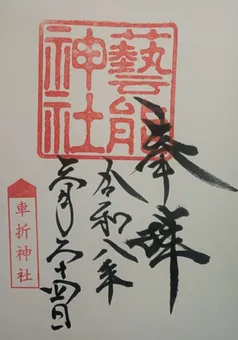 藝能
神社
奉拝
令和八年
月二十四日
車折神社